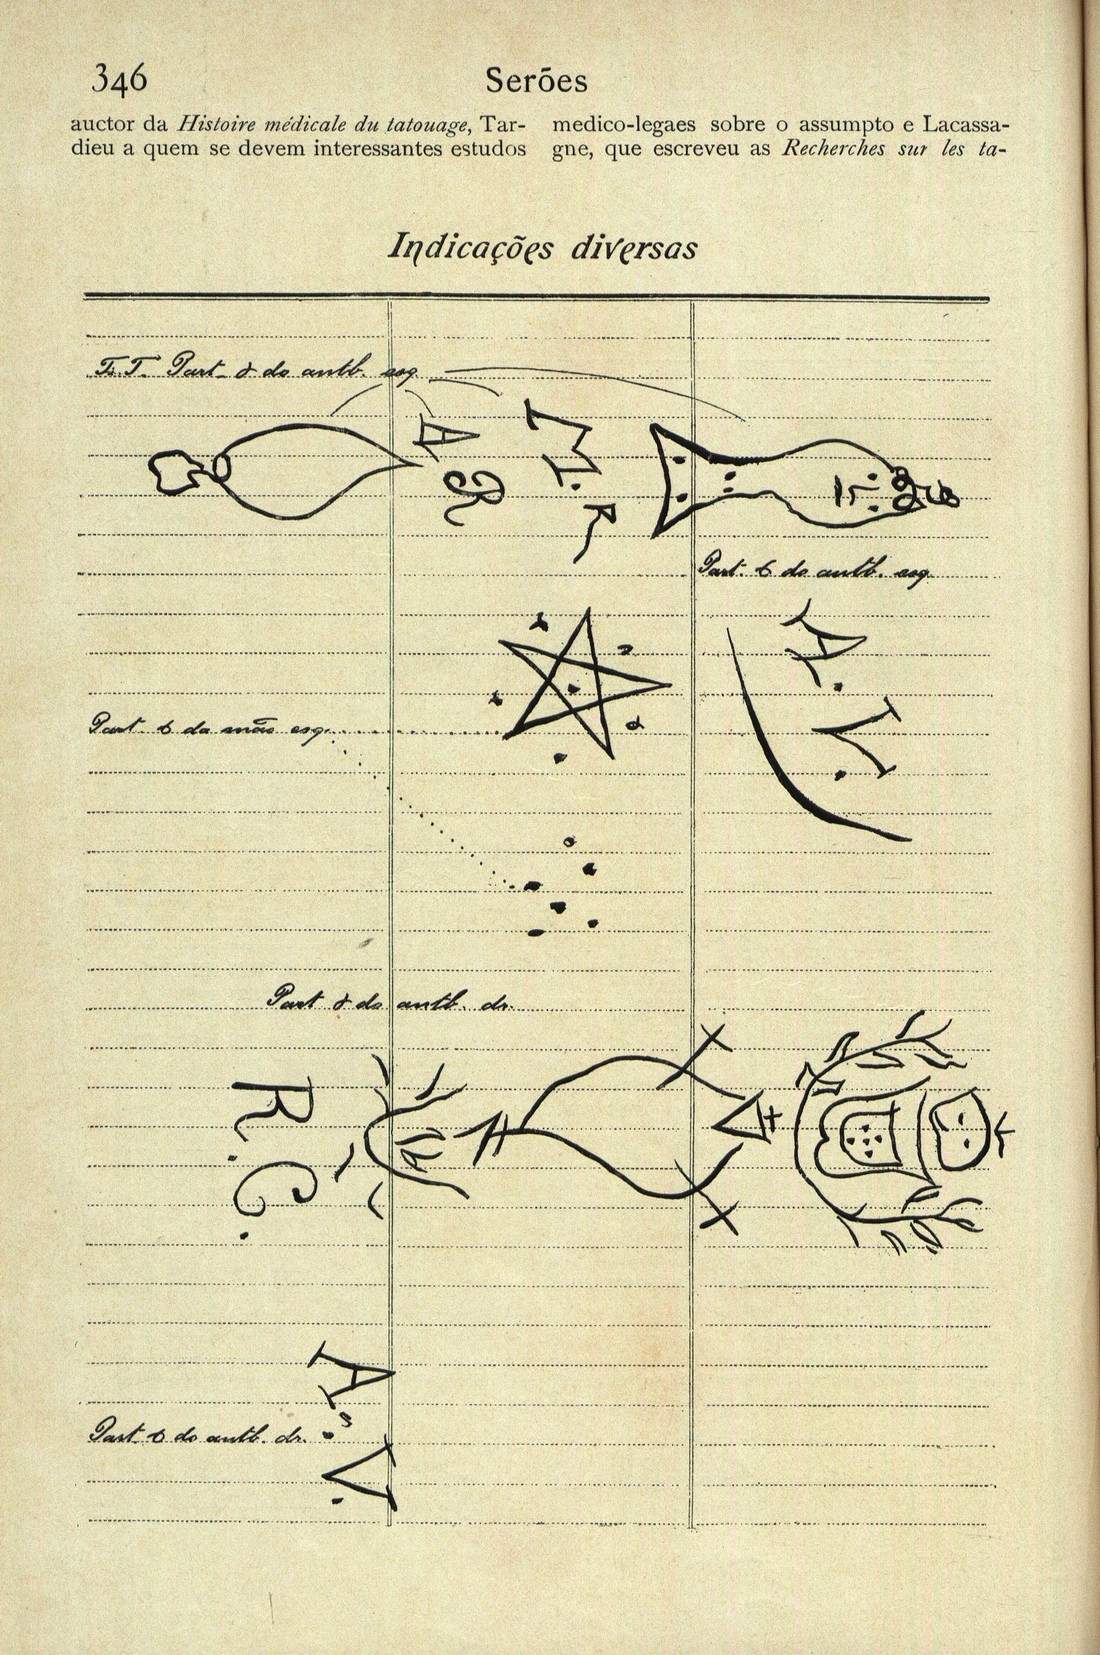 346
Serões
auctor da Histoire médicale du tatouage, Tar-
dieu a quem se devem interessantes estudos
medico-legaes sobre o assumpto e Lacassa-
gne, que escreveu as Recherches sur les ta-
Indicações diversas
Part. do antb. esq.
A
R
M. R
Part. do antb. esq.
A. V.
Part. da mão esq.
Part. do antb. dr.
R. C.
Part. do antb. dr.
A. V.